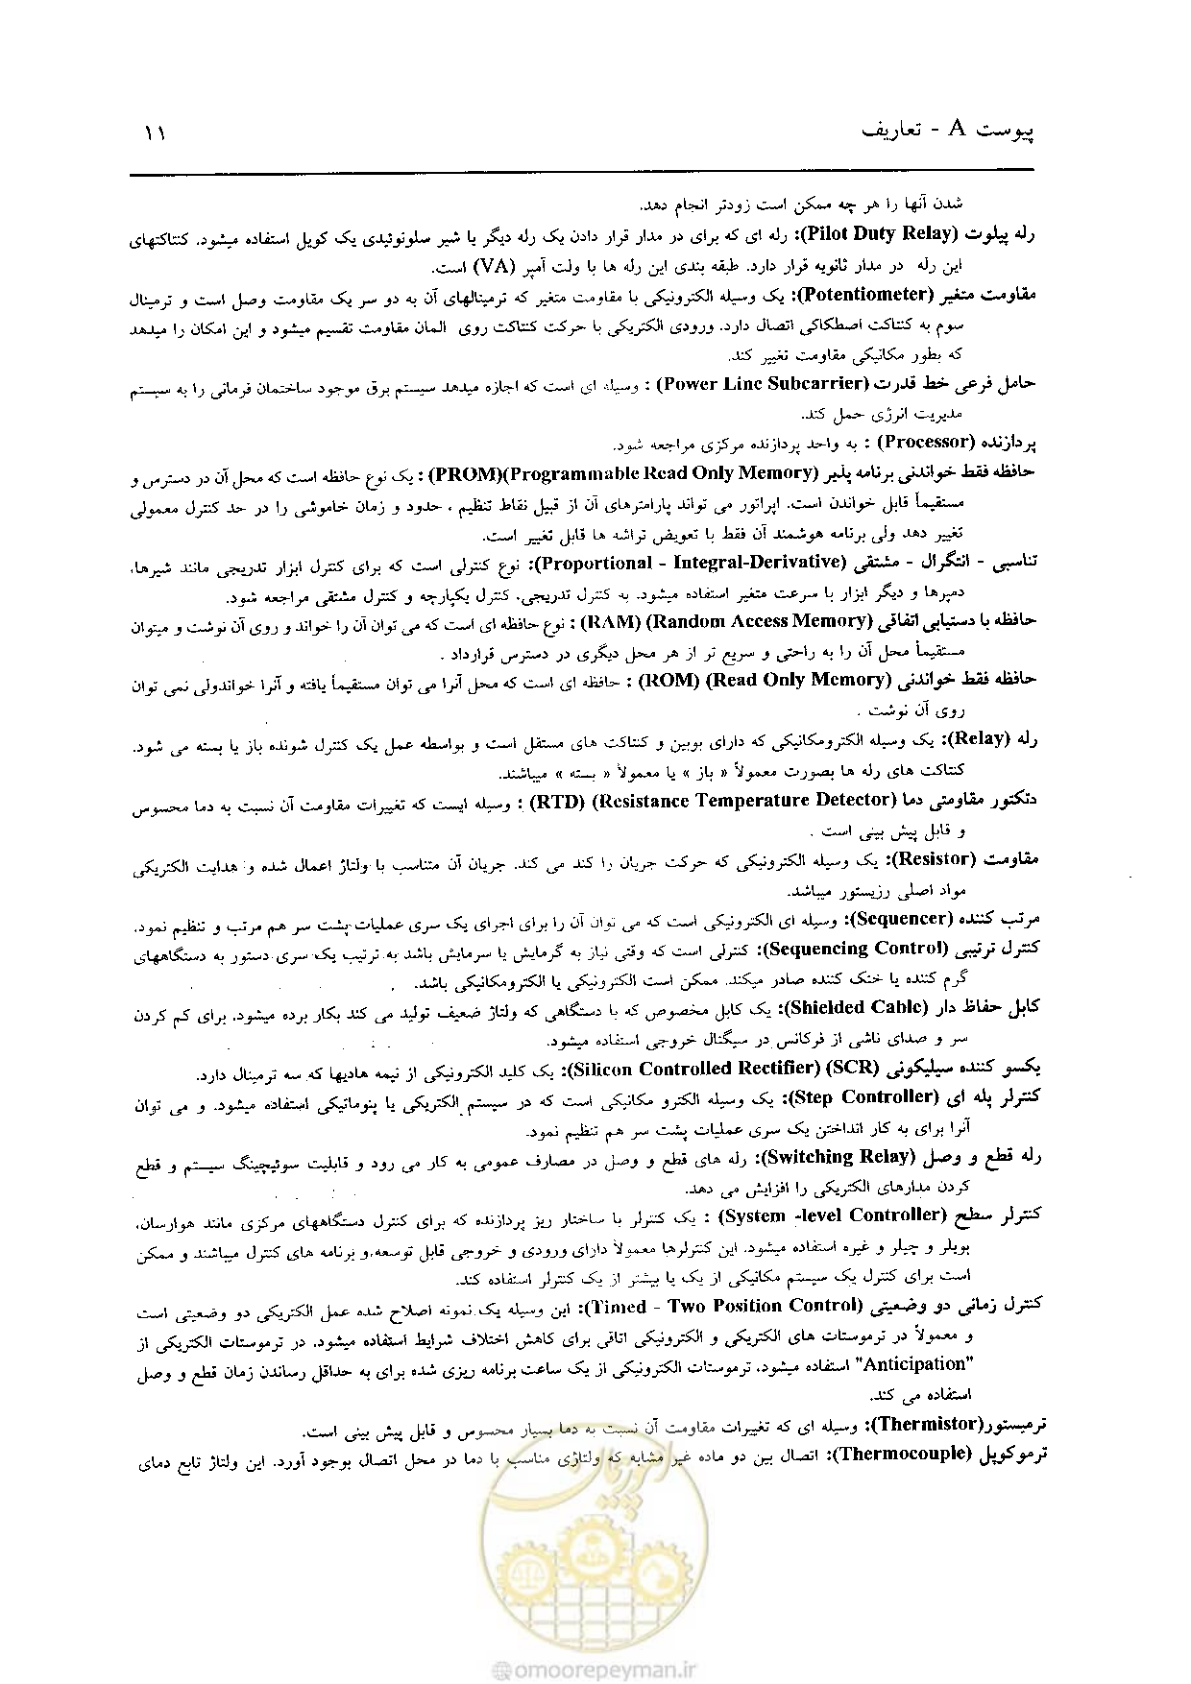 پیوست A - تعاریف
۱۱
شدن آنها را هر چه ممکن است زودتر انجام دهد.
رله پیلوت (Pilot Duty Relay): رله ای که برای در مدار قرار دادن یک رله دیگر یا شیر سلونوئیدی یک کویل استفاده میشود. کنتاکتهای
این رله در مدار ثانویه قرار دارد. طبقه بندی این رله ها با ولت آمپر (VA) است.
مقاومت متغیر (Potentiometer): یک وسیله الکترونیکی با مقاومت متغیر که ترمینالهای آن به دو سر یک مقاومت وصل است و ترمینال
سوم به کنتاکت اصطکاکی اتصال دارد. ورودی الکتریکی با حرکت کنتاکت روی المان مقاومت تقسیم میشود و این امکان را میدهد
که بطور مکانیکی مقاومت تغییر کند.
حامل فرعی خط قدرت (Power Line Subcarrier) : وسیله ای است که اجازه میدهد سیستم برق موجود ساختمان فرمانی را به سیستم
مدیریت انرژی حمل کند.
پردازنده (Processor) : به واحد پردازنده مرکزی مراجعه شود.
حافظه فقط خواندنی برنامه پذیر (PROM)(Programmable Read Only Memory) : یک نوع حافظه است که محل آن در دسترس و
مستقیماً قابل خواندن است. اپراتور می تواند پارامترهای آن از قبیل نقاط تنظیم ، حدود و زمان خاموشی را در حد کنترل معمولی
تغییر دهد ولی برنامه هوشمند آن فقط با تعویض تراشه ها قابل تغییر است.
تناسبی - انتگرال - مشتقی (Proportional - Integral-Derivative): نوع کنترلی است که برای کنترل ابزار تدریجی مانند شیرها،
دمپرها و دیگر ابزار با سرعت متغیر استفاده میشود. به کنترل تدریجی، کنترل یکپارچه و کنترل مشتقی مراجعه شود.
حافظه با دستیابی اتفاقی (RAM) (Random Access Memory) : نوع حافظه ای است که می توان آن را خواند و روی آن نوشت و میتوان
مستقیماً محل آن را به راحتی و سریع تر از هر محل دیگری در دسترس قرارداد .
حافظه فقط خواندنی (ROM) (Read Only Memory) : حافظه ای است که محل آنرا می توان مستقیماً یافته و آنرا خواندولی نمی توان
روی آن نوشت .
رله (Relay): یک وسیله الکترومکانیکی که دارای بوبین و کنتاکت های مستقل است و بواسطه عمل یک کنترل شونده باز یا بسته می شود.
کنتاکت های رله ها بصورت معمولاً « باز » یا معمولاً « بسته » میباشند.
دتکتور مقاومتی دما (RTD) (Resistance Temperature Detector) : وسیله ایست که تغییرات مقاومت آن نسبت به دما محسوس
و قابل پیش بینی است .
مقاومت (Resistor): یک وسیله الکترونیکی که حرکت جریان را کند می کند. جریان آن متناسب با ولتاژ اعمال شده و هدایت الکتریکی
مواد اصلی رزیستور میباشد.
مرتب کننده (Sequencer): وسیله ای الکترونیکی است که می توان آن را برای اجرای یک سری عملیات پشت سر هم مرتب و تنظیم نمود.
کنترل ترتیبی (Sequencing Control): کنترلی است که وقتی نیاز به گرمایش یا سرمایش باشد به ترتیب یک سری دستور به دستگاههای
گرم کننده یا خنک کننده صادر میکند. ممکن است الکترونیکی یا الکترومکانیکی باشد.
کابل حفاظ دار (Shielded Cable): یک کابل مخصوص که با دستگاهی که ولتاژ ضعیف تولید می کند بکار برده میشود. برای کم کردن
سر و صدای ناشی از فرکانس در سیگنال خروجی استفاده میشود.
یکسو کننده سیلیکونی (SCR) (Silicon Controlled Rectifier): یک کلید الکترونیکی از نیمه هادیها که سه ترمینال دارد.
کنترلر پله ای (Step Controller): یک وسیله الکترو مکانیکی است که در سیستم الکتریکی یا پنوماتیکی استفاده میشود. و می توان
آنرا برای به کار انداختن یک سری عملیات پشت سر هم تنظیم نمود.
رله قطع و وصل (Switching Relay): رله های قطع و وصل در مصارف عمومی به کار می رود و قابلیت سوئیچینگ سیستم و قطع
کردن مدارهای الکتریکی را افزایش می دهد.
کنترلر سطح (System -level Controller) : یک کنترلر با ساختار ریز پردازنده که برای کنترل دستگاههای مرکزی مانند هوارسان،
بویلر و چیلر و غیره استفاده میشود. این کنترلرها معمولاً دارای ورودی و خروجی قابل توسعه و برنامه های کنترل میباشند و ممکن
است برای کنترل یک سیستم مکانیکی از یک یا بیشتر از یک کنترلر استفاده کند.
کنترل زمانی دو وضعیتی (Timed - Two Position Control): این وسیله یک نمونه اصلاح شده عمل الکتریکی دو وضعیتی است
و معمولاً در ترموستات های الکتریکی و الکترونیکی اتاقی برای کاهش اختلاف شرایط استفاده میشود. در ترموستات الکتریکی از
"Anticipation" استفاده میشود. ترموستات الکترونیکی از یک ساعت برنامه ریزی شده برای به حداقل رساندن زمان قطع و وصل
استفاده می کند.
ترمیستور(Thermistor): وسیله ای که تغییرات مقاومت آن نسبت به دما بسیار محسوس و قابل پیش بینی است.
ترموکوپل (Thermocouple): اتصال بین دو ماده غیر مشابه که ولتاژی مناسب با دما در محل اتصال بوجود آورد. این ولتاژ تابع دمای
امور پیمان
@omoorepeyman.ir